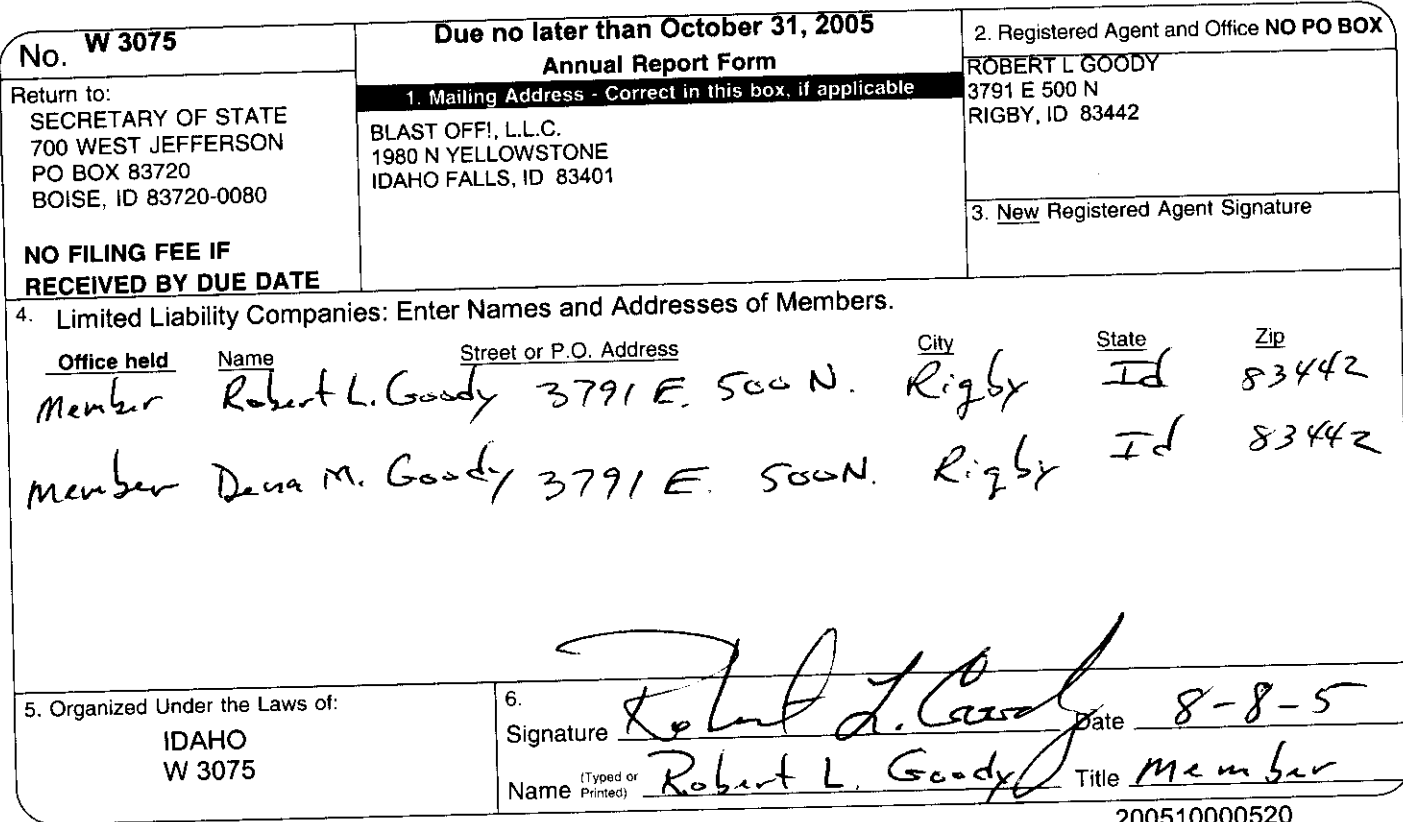 No. W 3075
Return to:
SECRETARY OF STATE
700 WEST JEFFERSON
PO BOX 83720
BOISE, ID 83720-0080
NO FILING FEE IF
RECEIVED BY DUE DATE
Due no later than October 31, 2005
Annual Report Form
1. Mailing Address - Correct in this box, if applicable
BLAST OFF!, L.L.C.
1980 N YELLOWSTONE
IDAHO FALLS, ID 83401
2. Registered Agent and Office NO PO BOX
ROBERT L GOODY
3791 E 500 N
RIGBY, ID 83442
3. New Registered Agent Signature
4. Limited Liability Companies: Enter Names and Addresses of Members.
Office held Name Street or P.O. Address City State Zip
Member Robert L. Goody 3791 E. 500 N. Rigby Id 83442
Member Dena M. Goody 3791 E. 500 N. Rigby Id 83442
5. Organized Under the Laws of:
IDAHO
W 3075
6.
Signature Robert L. Goody Date 8-8-5
Name (Typed or Printed) Robert L. Goody Title Member
200510000520